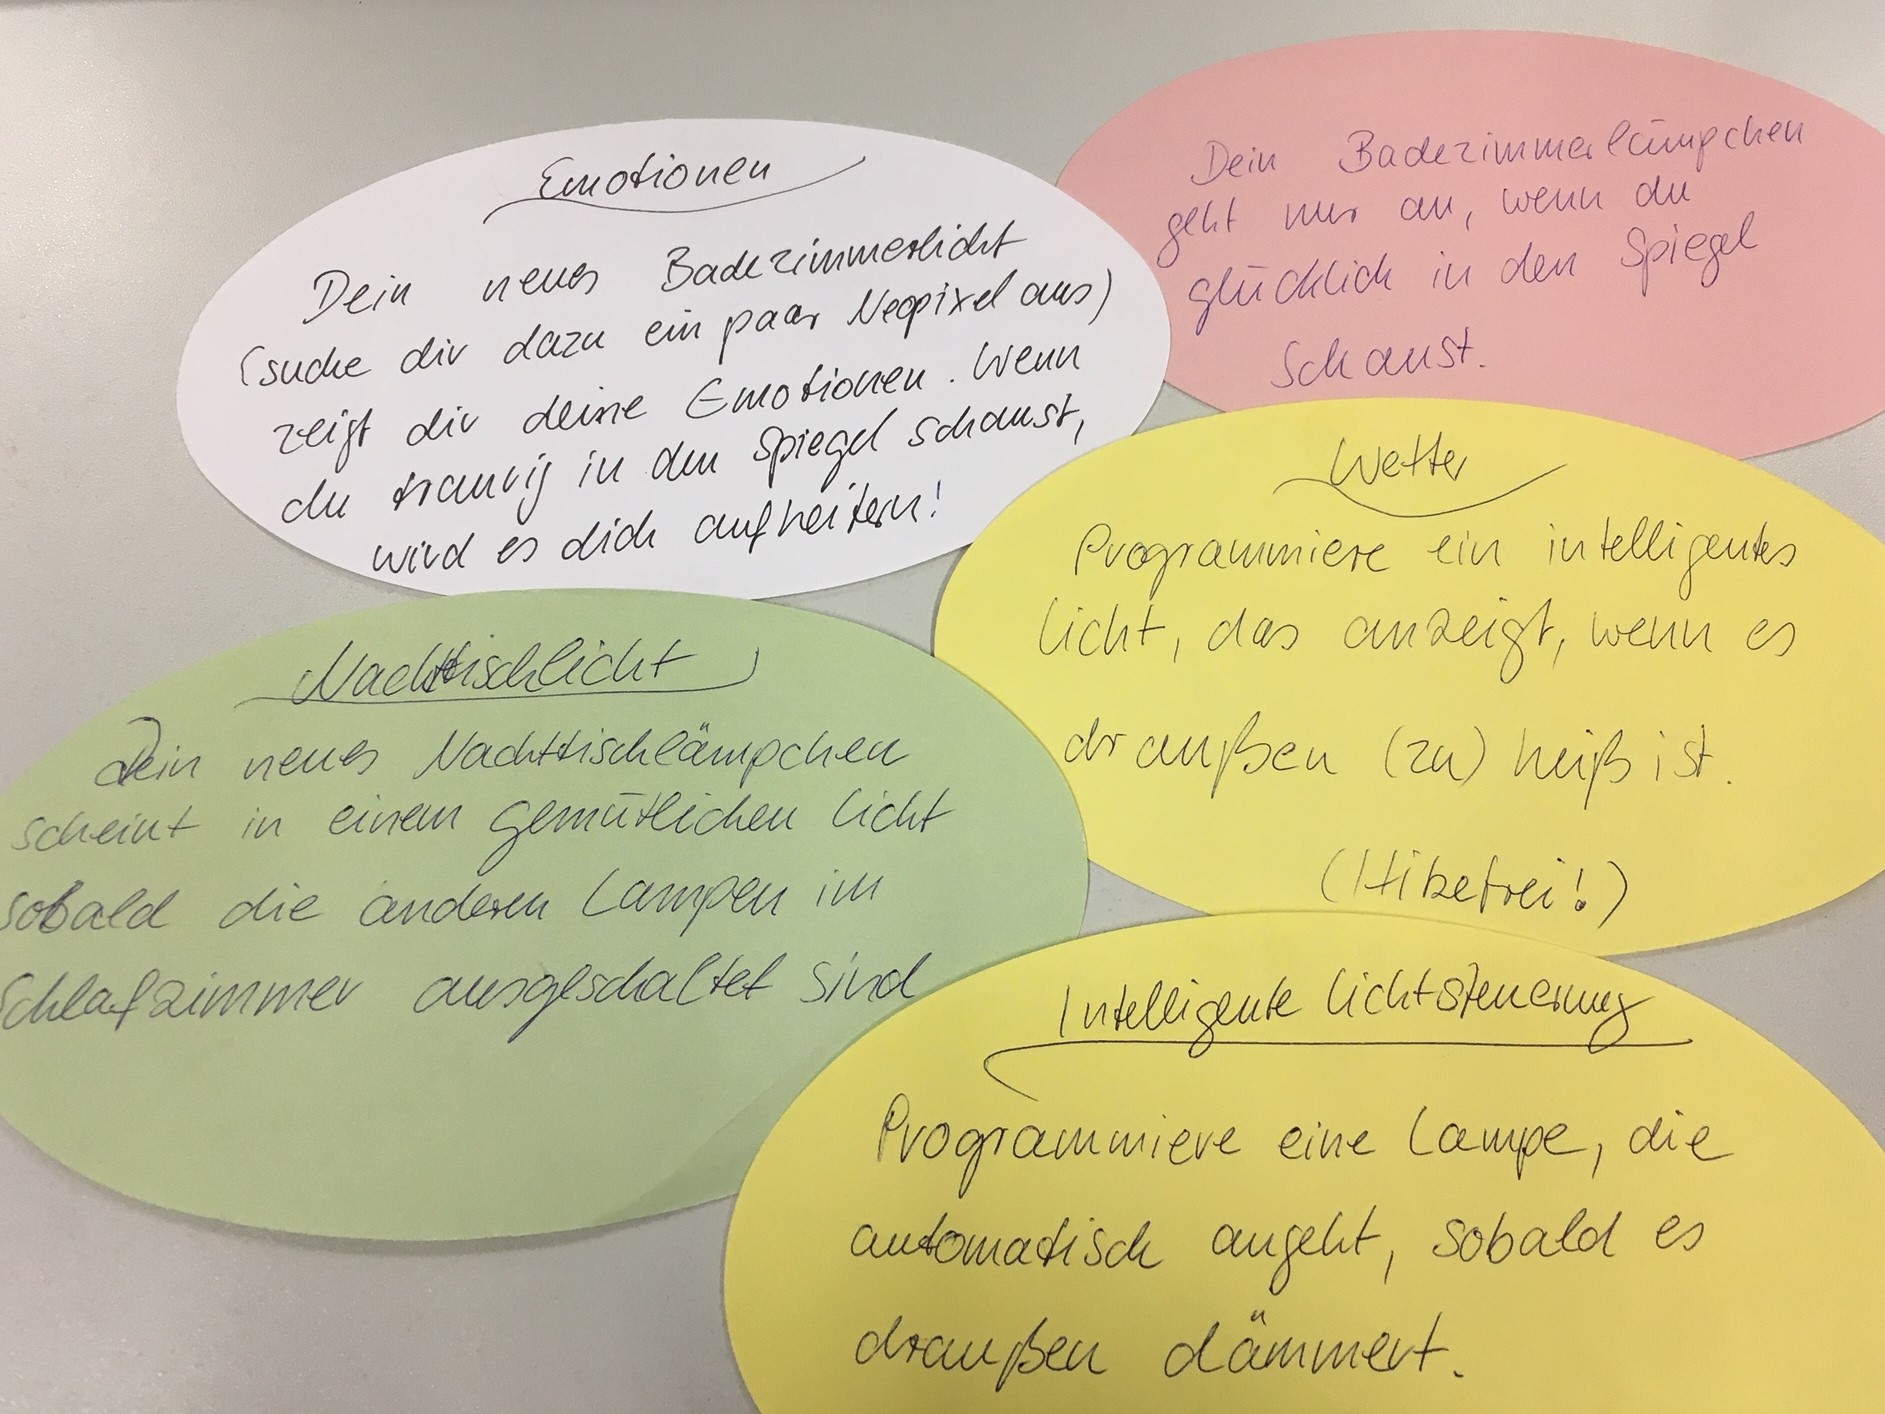 Emotionen
Dein neues Badezimmerlicht
(suche dir dazu ein paar Neopixel aus)
zeigt dir deine Emotionen. Wenn
du traurig in den Spiegel schaust,
wird es dich aufheitern!
Dein Badezimmerlämpchen
geht nur an, wenn du
glücklich in den Spiegel
schaust.
Wetter
Programmiere ein intelligentes
Licht, das anzeigt, wenn es
draußen (zu) heiß ist.
(Hitzefrei!)
Nachttischlicht
Dein neues Nachttischlämpchen
scheint in einem gemütlichen Licht
sobald die anderen Lampen im
Schlafzimmer ausgeschaltet sind
Intelligente Lichtsteuerung
Programmiere eine Lampe, die
automatisch angeht, sobald es
draußen dämmert.